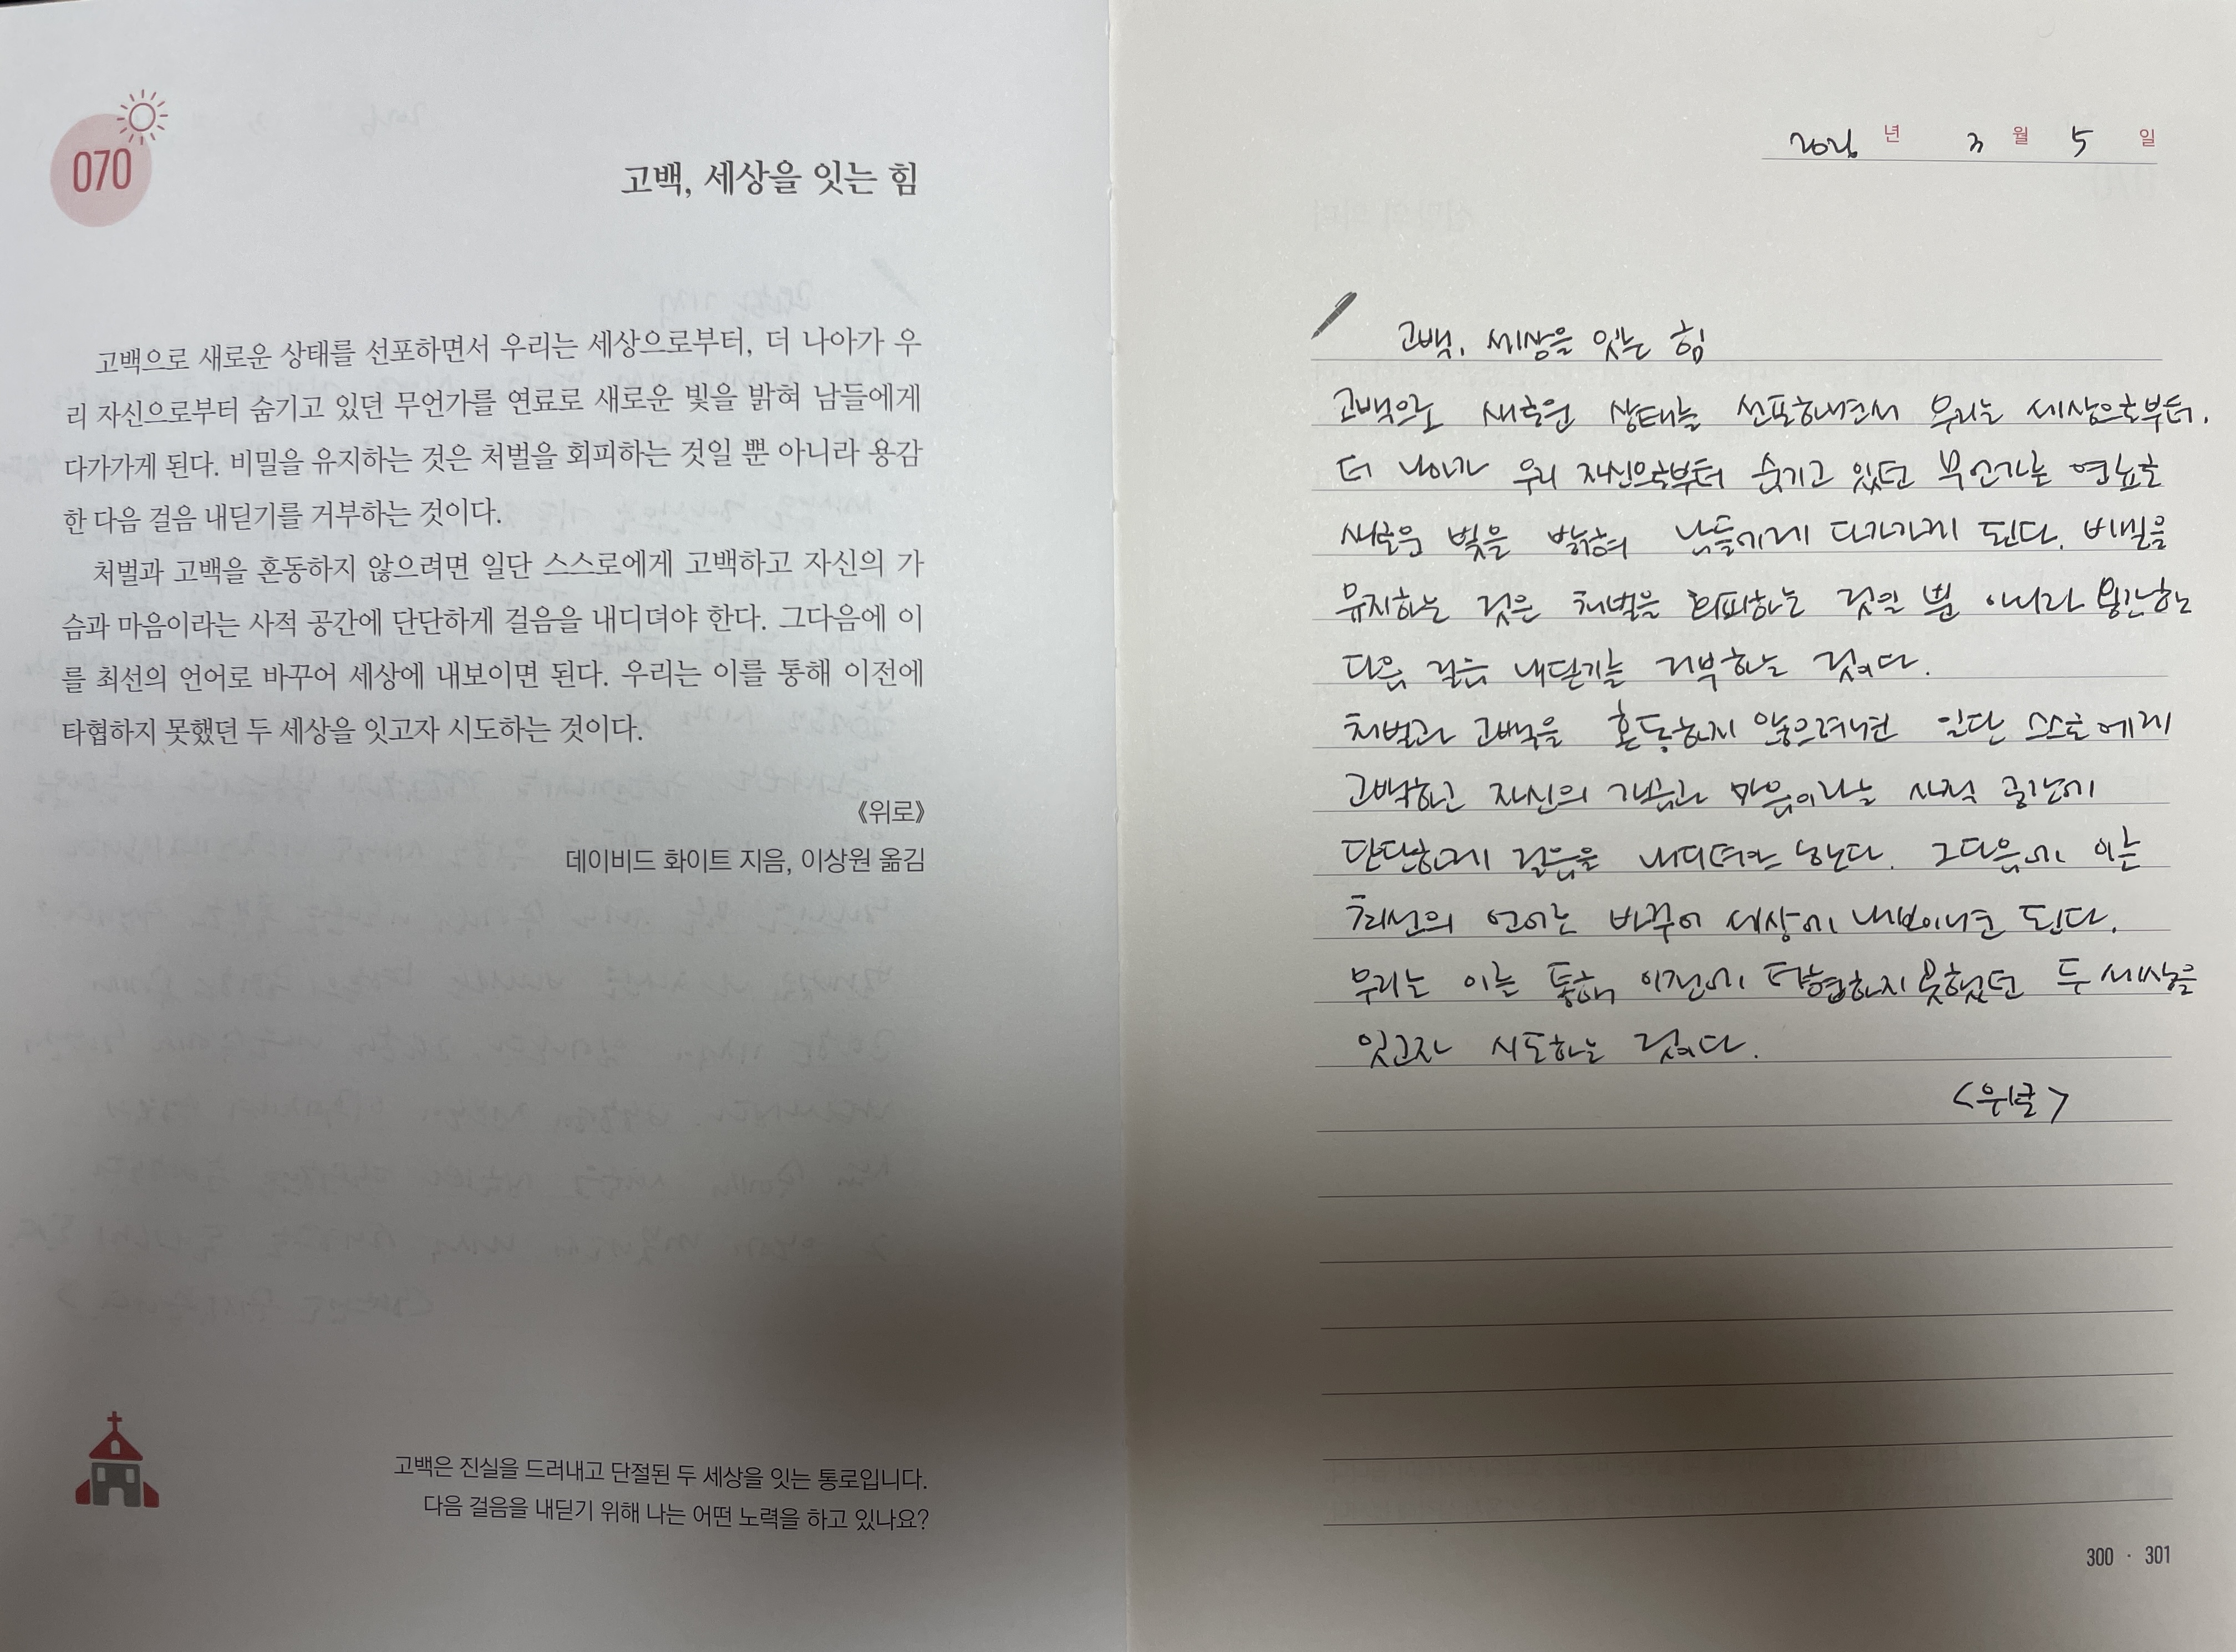 070
고백, 세상을 잇는 힘
고백으로 새로운 상태를 선포하면서 우리는 세상으로부터, 더 나아가 우
리 자신으로부터 숨기고 있던 무언가를 연료로 새로운 빛을 밝혀 남들에게
다가가게 된다. 비밀을 유지하는 것은 처벌을 회피하는 것일 뿐 아니라 용감
한 다음 걸음 내딛기를 거부하는 것이다.
처벌과 고백을 혼동하지 않으려면 일단 스스로에게 고백하고 자신의 가
슴과 마음이라는 사적 공간에 단단하게 걸음을 내디뎌야 한다. 그다음에 이
를 최선의 언어로 바꾸어 세상에 내보이면 된다. 우리는 이를 통해 이전에
타협하지 못했던 두 세상을 잇고자 시도하는 것이다.
《위로》
데이비드 화이트 지음, 이상원 옮김
고백은 진실을 드러내고 단절된 두 세상을 잇는 통로입니다.
다음 걸음을 내딛기 위해 나는 어떤 노력을 하고 있나요?
2026 년 3 월 5 일
고백, 세상을 잇는 힘
고백으로 새로운 상태를 선포하면서 우리는 세상으로부터,
더 나아가 우리 자신으로부터 숨기고 있던 무언가를 연료로
새로운 빛을 밝혀 남들에게 다가가게 된다. 비밀을
유지하는 것은 처벌을 회피하는 것일 뿐 아니라 용감한
다음 걸음 내딛기를 거부하는 것이다.
처벌과 고백을 혼동하지 않으려면 일단 스스로에게
고백하고 자신의 가슴과 마음이라는 사적 공간에
단단하게 걸음을 내디뎌야 한다. 그다음에 이를
최선의 언어로 바꾸어 세상에 내보이면 된다.
우리는 이를 통해 이전에 타협하지 못했던 두 세상을
잇고자 시도하는 것이다.
<위로>
300 · 301